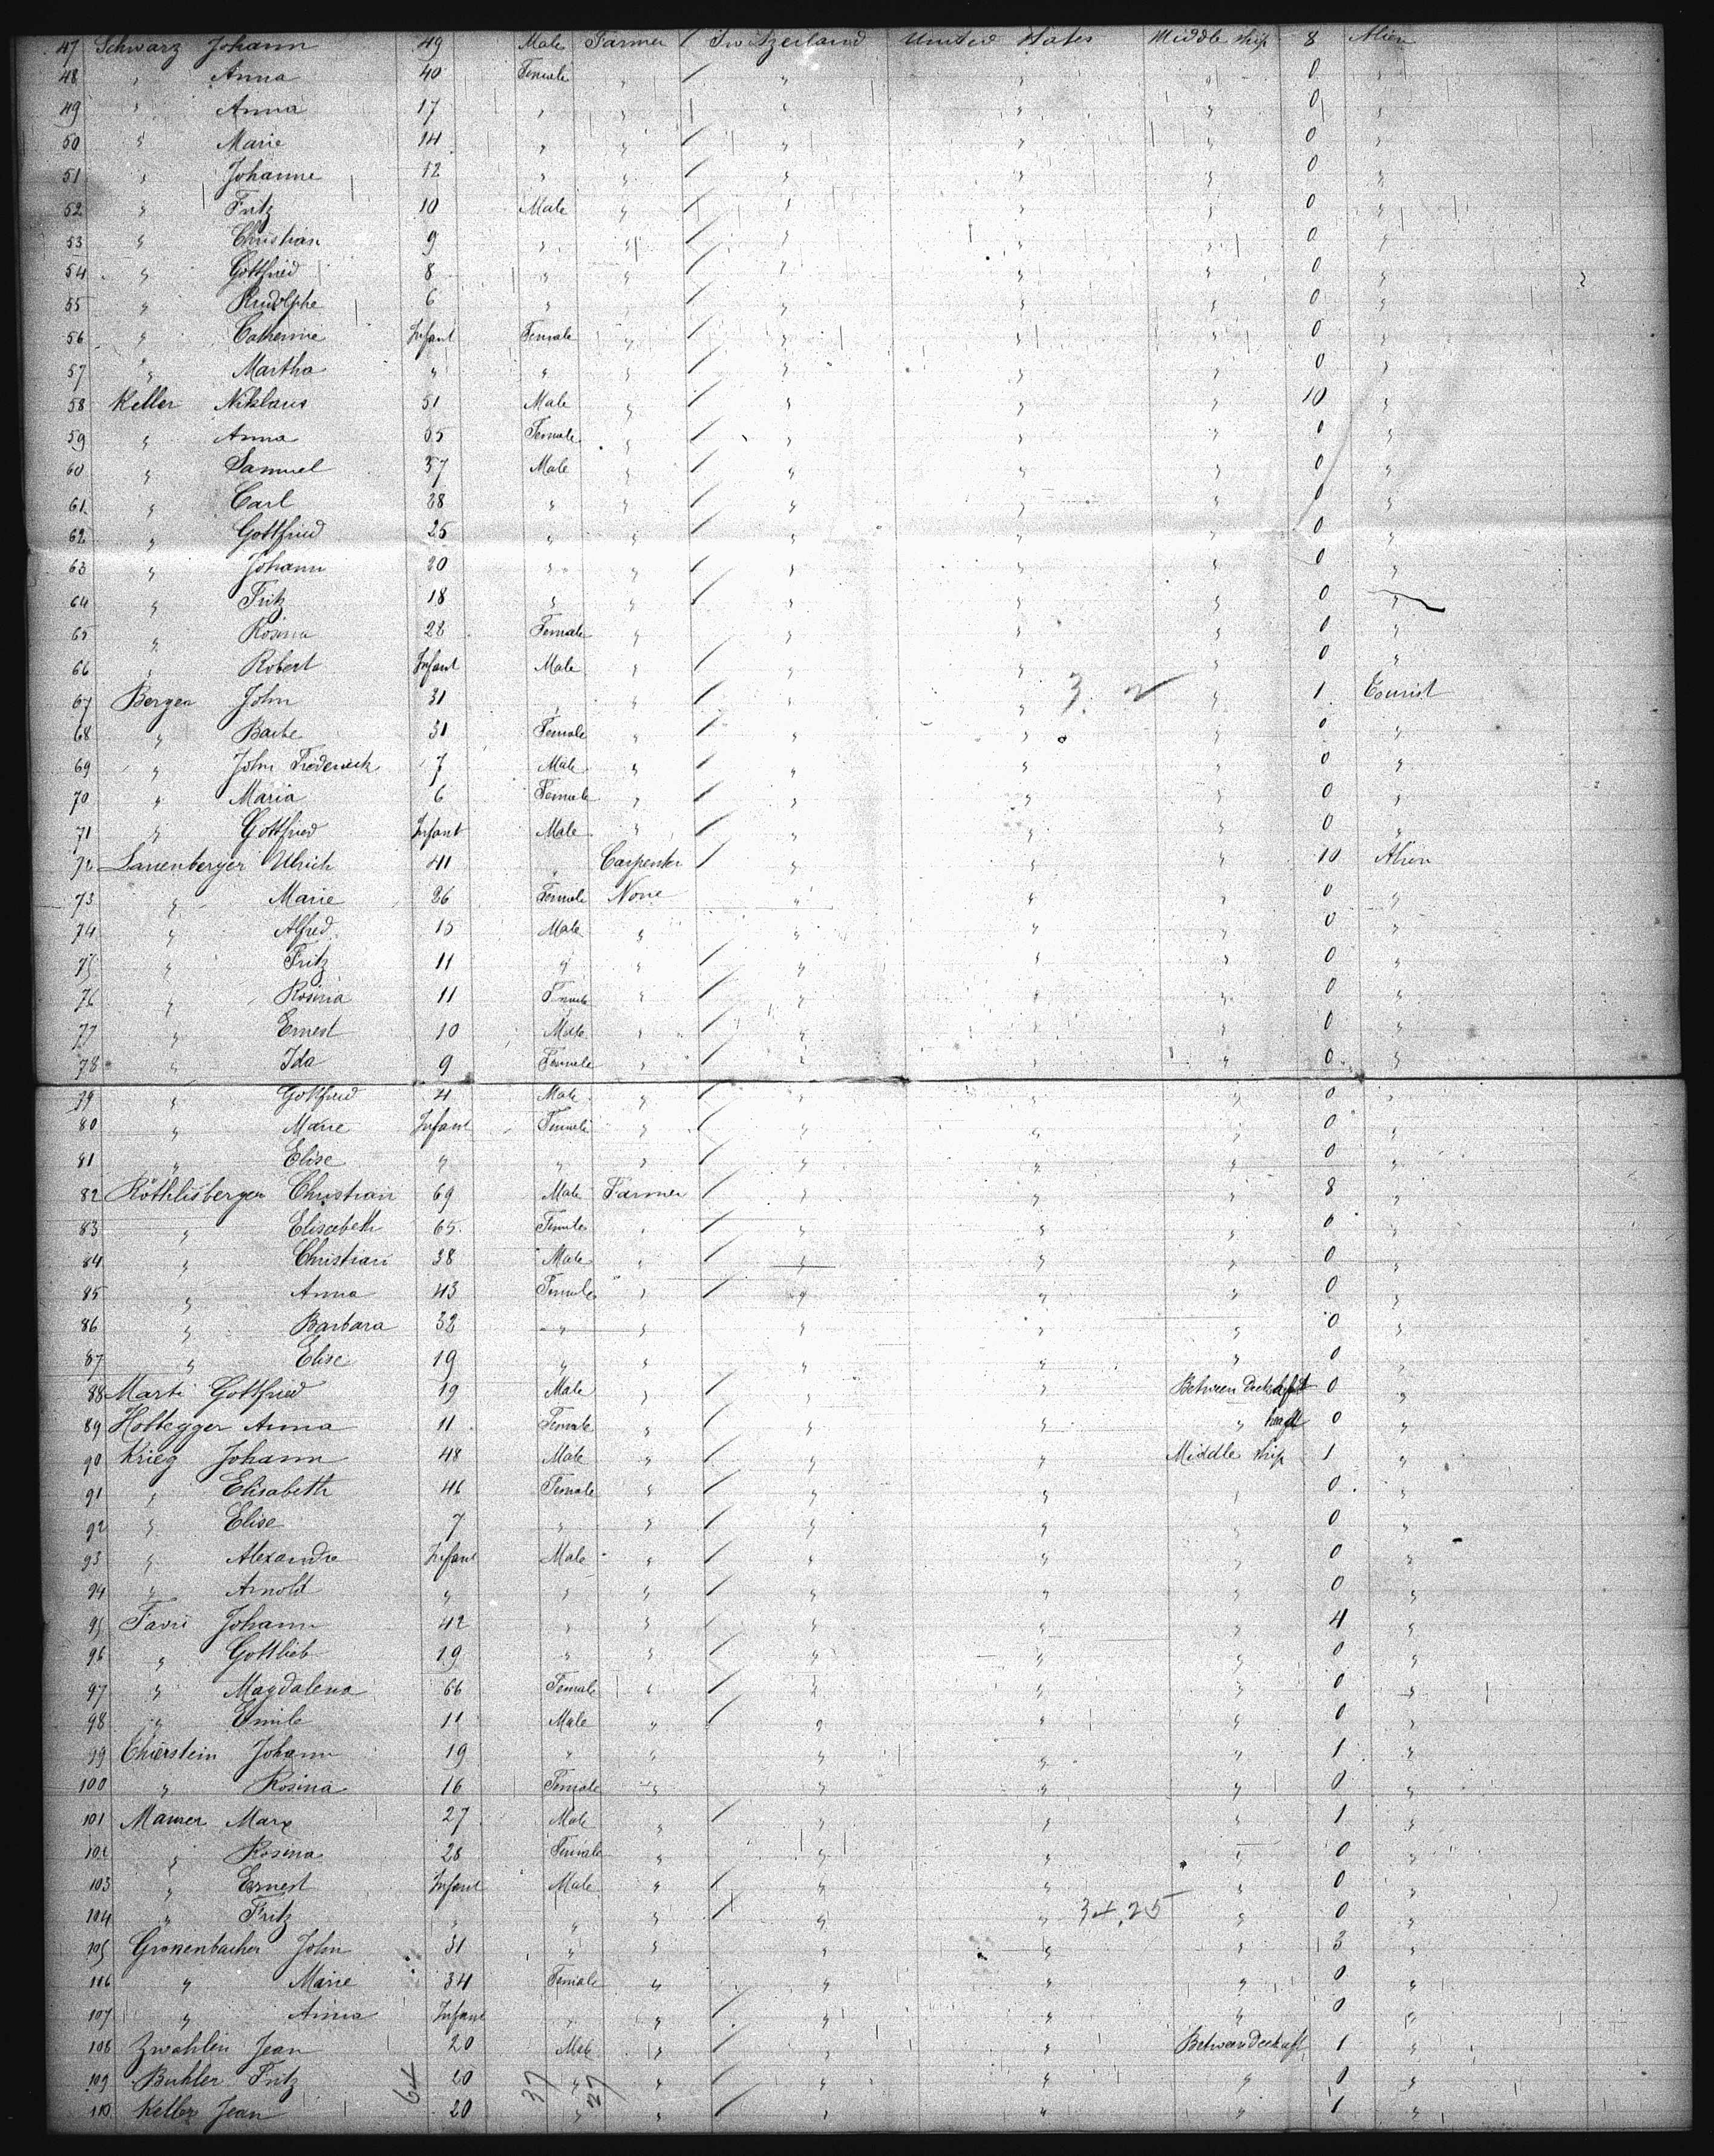 47 Schwarz Johann 49 Male Farmer / Switzerland United States Middle ship 8 Alien
48 " Anna 40 Female " / " " " 0 "
49 " Anna 17 " " " " " 0 "
50 " Marie 14 " " / " " " 0 "
51 " Johanne 12 " " / " " " 0 "
52 " Fritz 10 Male " / " " " 0 "
53 " Christian 9 " " / " " " 0 "
54 " Gottfried 8 " " / " " " 0 "
55 " Rudolphe 6 " " / " " " 0 "
56 " Catherine Infant Female " / " " " 0 "
57 " Martha " " " / " " " 0 "
58 Keller Niklaus 51 Male " / " " " 10 "
59 " Anna 55 Female " / " " " 0 "
60 " Samuel 37 Male " / " " " 0 "
61 " Carl 38 " " / " " " 0 "
62 " Gottfried 25 " " / " " " 0 "
63 " Johann 20 " " / " " " 0 "
64 " Fritz 18 " " / " " " 0 "
65 " Rosina 28 Female " / " " " 0 "
66 " Robert Infant Male " / " " " 0 "
67 Berger John 31 " " / " " " 1 Tourist
68 " Barbe 31 Female " / " " " 0 "
69 " John Frederick 7 Male " / " " " 0 "
70 " Maria 6 Female " / " " " 0 "
71 " Gottfried Infant Male " / " " " 0 "
72 Lauenberger Ulrich 41 " Carpenter / " " " 10 Alien
73 " Marie 26 Female None " " " 0 "
74 " Alfred 15 Male " " " " 0 "
75 " Fritz 11 " " / " " " 0 "
76 " Rosina 11 Female " / " " " 0 "
77 " Ernest 10 Male " / " " " 0 "
78 " Ida 9 Female " / " " " 0 "
79 " Gottfried 4 Male " / " " " 0 "
80 " Marie Infant Female " / " " " 0 "
81 " Elise " " " / " " " 0 "
82 Röthlisberger Christian 69 Male Farmer / " " " 8 "
83 " Elisabeth 65 Female " / " " " 0 "
84 " Christian 38 Male " / " " " 0 "
85 " Anna 43 Female " / " " " 0 "
86 " Barbara 32 " " " " " 0 "
87 " Elise 19 " " " " " 0 "
88 Marti Gottfried 19 Male " / " " Between Deck aft 0 "
89 Hottegger Anna 11 Female " / " " " 0 "
90 Krieg Johann 48 Male " / " " Middle ship 1 "
91 " Elisabeth 46 Female " / " " " 0 "
92 " Elise 7 " " / " " " 0 "
93 " Alexandre Infant Male " / " " " 0 "
94 " Arnold " " " / " " " 0 "
95 Johann 42 " " " " " 4 "
96 " Gottlieb 19 " " / " " " 0 "
97 " Magdalena 66 Female " / " " " 0 "
98 " Emile 11 Male " / " " " 0 "
99 Thierstein Johann 19 " " " " " 1 "
100 " Rosina 16 Female " " " " 0 "
101 Maurer Marx 27 Male " / " " " 1 "
102 " Rosina 28 Female " " " " 0 "
103 " Ernest Infant Male " / " " " 0 "
104 " Fritz " " " / " " " 0 "
105 Gronenbacher John 31 " " " " " 3 "
106 " Marie 34 Female " " " " 0 "
107 " Anna Infant " " / " " " 0 "
108 Zwahlen Jean 20 Male " / " " Between Deck aft 1 "
109 Buhler Fritz 20 " " / " " " 0 "
110 Keller Jean 20 " " / " " " 1 "
64 37 27